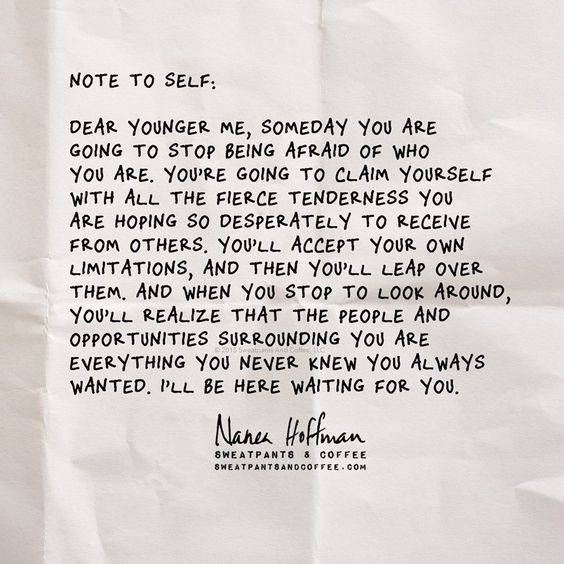 NOTE TO SELF:
DEAR YOUNGER ME, SOMEDAY YOU ARE
GOING TO STOP BEING AFRAID OF WHO
YOU ARE. YOU'RE GOING TO CLAIM YOURSELF
WITH ALL THE FIERCE TENDERNESS YOU
ARE HOPING SO DESPERATELY TO RECEIVE
FROM OTHERS. YOU'LL ACCEPT YOUR OWN
LIMITATIONS, AND THEN YOU'LL LEAP OVER
THEM. AND WHEN YOU STOP TO LOOK AROUND,
YOU'LL REALIZE THAT THE PEOPLE AND
OPPORTUNITIES SURROUNDING YOU ARE
© 2015 Sweatpants And Coffee, LLC
EVERYTHING YOU NEVER KNEW YOU ALWAYS
WANTED. I'LL BE HERE WAITING FOR YOU.
Nanea Hoffman
SWEATPANTS & COFFEE
SWEATPANTSANDCOFFEE.COM